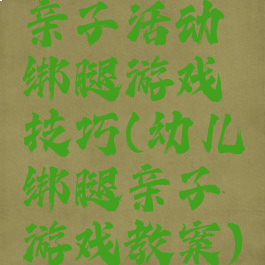 亲子活动
绑腿游戏
技巧(幼儿
绑腿亲子
游戏教案)